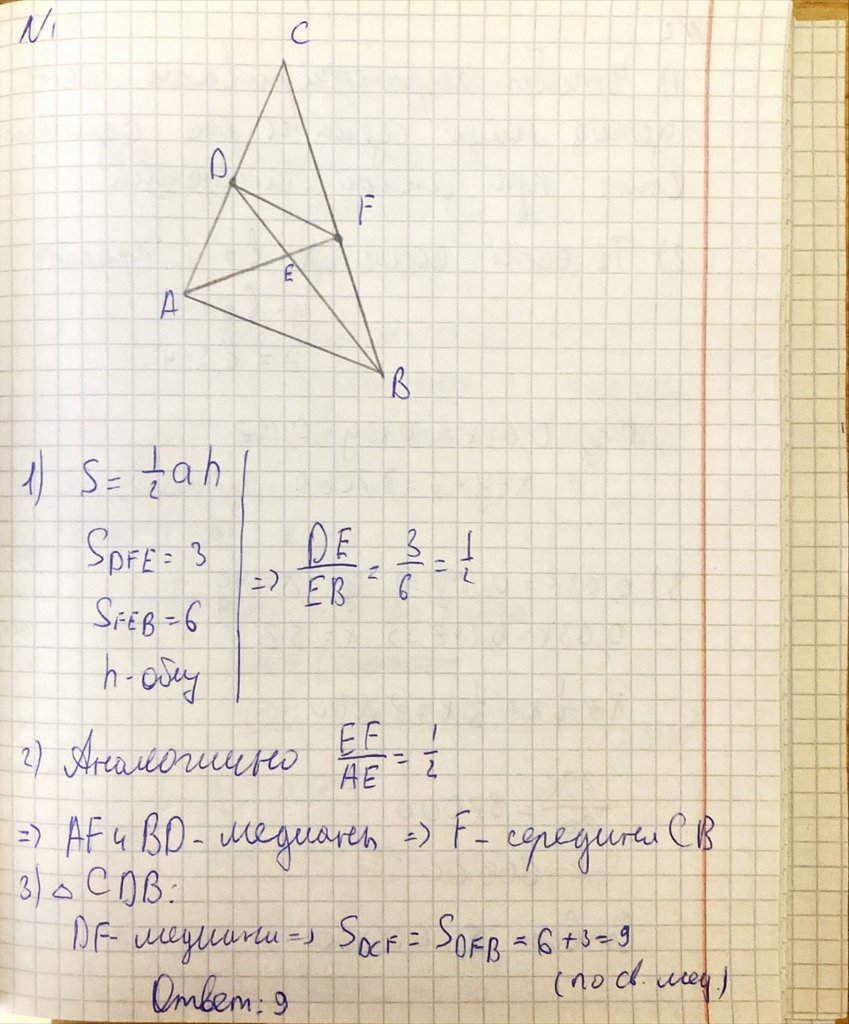 N1
C
D
F
E
A
B
1) S = 1/2 a h
S_DFE = 3
S_FEB = 6
h - общ
=> DE/EB = 3/6 = 1/2
2) Аналогично EF/AE = 1/2
=> AF и BD - медианы => F - середина CB
3) △ CDB:
DF - медиана => S_DCF = S_DFB = 6 + 3 = 9
(по св. мед.)
Ответ: 9